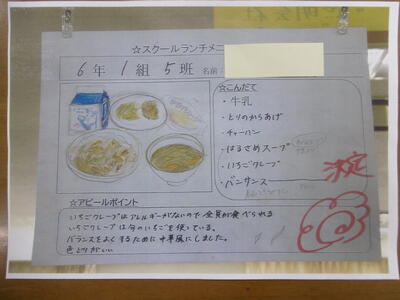 ☆スクールランチメニ
6年 1組 5班 名前
☆こんだて
・牛乳
・とりのからあげ
・チャーハン
・はるさめスープ
・いちごクレープ
・バンサンス
決定
☆アピールポイント
いちごクレープはアレルギーがないので全員が食べられる
いちごクレープは旬のいちごを使っている。
バランスをよくするために中華風にしました。
色どりがいい